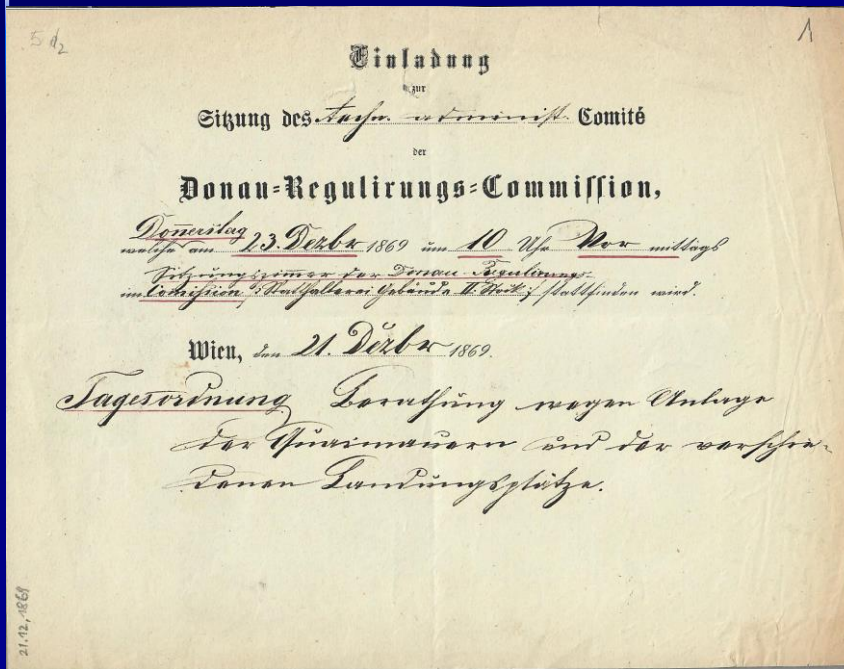 5 d/2
1
Einladung
zur
Sitzung des techn. administ. Comité
der
Donau=Regulirungs=Commission,
Donnerstag
welche am 23. Dezbr 1869 um 10 Uhr Vor mittags
Sitzungszimmer der Donau-Regulirungs-
im Comission /: Statthalterei Gebäude II. Stock :/ stattfinden wird.
Wien, den 21. Dezbr 1869.
Tagesordnung Berathung wegen Anlage
der Quaimauern und der verschie-
denen Landungsplätze.
21.12.1869